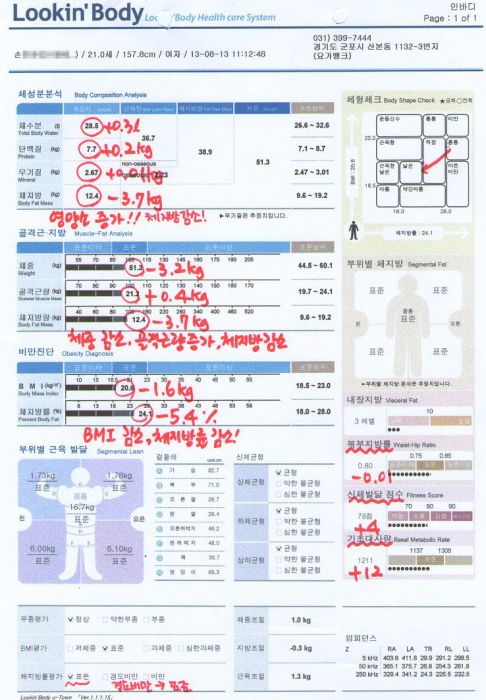 Lookin'Body LookIn'Body Health care System
인바디
Page : 1 of 1
손 ) / 21.0세 / 157.8cm / 여자 / 13-08-13 11:12:48
031) 399-7444
경기도 군포시 산본동 1132-3번지
(요가뱅크)
체성분분석 Body Composition Analysis
표준범위
체수분 (ℓ) 28.5 +0.3L 26.6 ~ 32.6
Total Body Water
36.7
단백질 (kg) 7.7 +0.2kg 38.9 7.1 ~ 8.7
Protein
51.3
non-osseous
무기질 (kg) 2.67 2.47 ~ 3.01
Mineral
체지방 (kg) 12.4 -3.7kg 9.6 ~ 19.2
Body Fat Mass
영양소 증가!! 체지방감소!
▶무기질은 추정치입니다.
골격근·지방 Muscle-Fat Analysis
표준이하 표준 표준이상 표준범위
55 70 85 100 115 130 145 160 175 190 205
체중 (kg) 51.3 -3.2kg 44.5 ~ 60.1
Weight
골격근량 (kg) 21.2 +0.4kg 19.7 ~ 24.1
Skeletal Muscle Mass
체지방량 (kg) 12.4 -3.7kg 9.6 ~ 19.2
Body Fat Mass
체중 감소, 골격근량증가, 체지방감소
비만진단 Obesity Diagnosis
표준이하 표준 표준이상 표준범위
B M I (kg/m²) 20.6 -1.6kg 18.5 ~ 23.0
Body Mass Index
체지방률 (%) 24.1 -5.4% 18.0 ~ 28.0
Percent Body Fat
BMI 감소, 체지방률 감소!
부위별 근육 발달 Segmental Lean
1.73kg 1.78kg
표준 표준
몸통
16.7kg
표준
왼 오른
6.00kg 6.10kg
표준 표준
겉둘레 Unit:cm
가 슴 82.7
복 부 71.0
오 른 팔 26.7
왼 팔 26.4
오른허벅지 48.2
왼허벅지 48.0
목 30.7
엉 덩 이 88.3
신체균형
상체균형 ∨ 균형
□ 약한 불균형
□ 심한 불균형
하체균형 ∨ 균형
□ 약한 불균형
□ 심한 불균형
상하균형 ∨ 균형
□ 약한 불균형
□ 심한 불균형
체형체크 Body Shape Check ★금회○전회
운동선수 통통 비만
23.0
근육형 적정 통통
근육형 날씬 날씬 마른 비만
18.5
마름 약간마름
18.0 28.0
BMI : 20.6
체지방률 : 24.1
부위별 체지방 Segmental Fat
표준 표준
표준
왼 오른
표준 표준
▶부위별 체지방 분석은 추정치입니다.
내장지방 Visceral Fat
3 레벨 10
복부지방률 Waist-Hip Ratio
0.75 0.85
0.80
-0.01
신체발달 점수 Fitness Score
70 80 90
78점
+4
기초대사량 Basal Metabolic Rate
1137 1308
1211
+12
부종평가 ∨ 정상 □ 약한부종 □ 부종
BMI평가 □ 저체중 ∨ 표준 □ 과체중 □ 심한과체중
체지방률평가 ∨ 표준 □ 경도비만 □ 비만
경도비만 → 표준
체중조절 1.0 kg
지방조절 -0.3 kg
근육조절 1.3 kg
임피던스
Z RA LA TR RL LL
5 kHz 403.6 411.6 29.9 291.2 298.5
50 kHz 365.1 375.7 26.8 254.3 261.8
250 kHz 329.4 341.2 24.3 225.5 232.5
Lookin'Body u-Town "Ver.1.1.1.15"